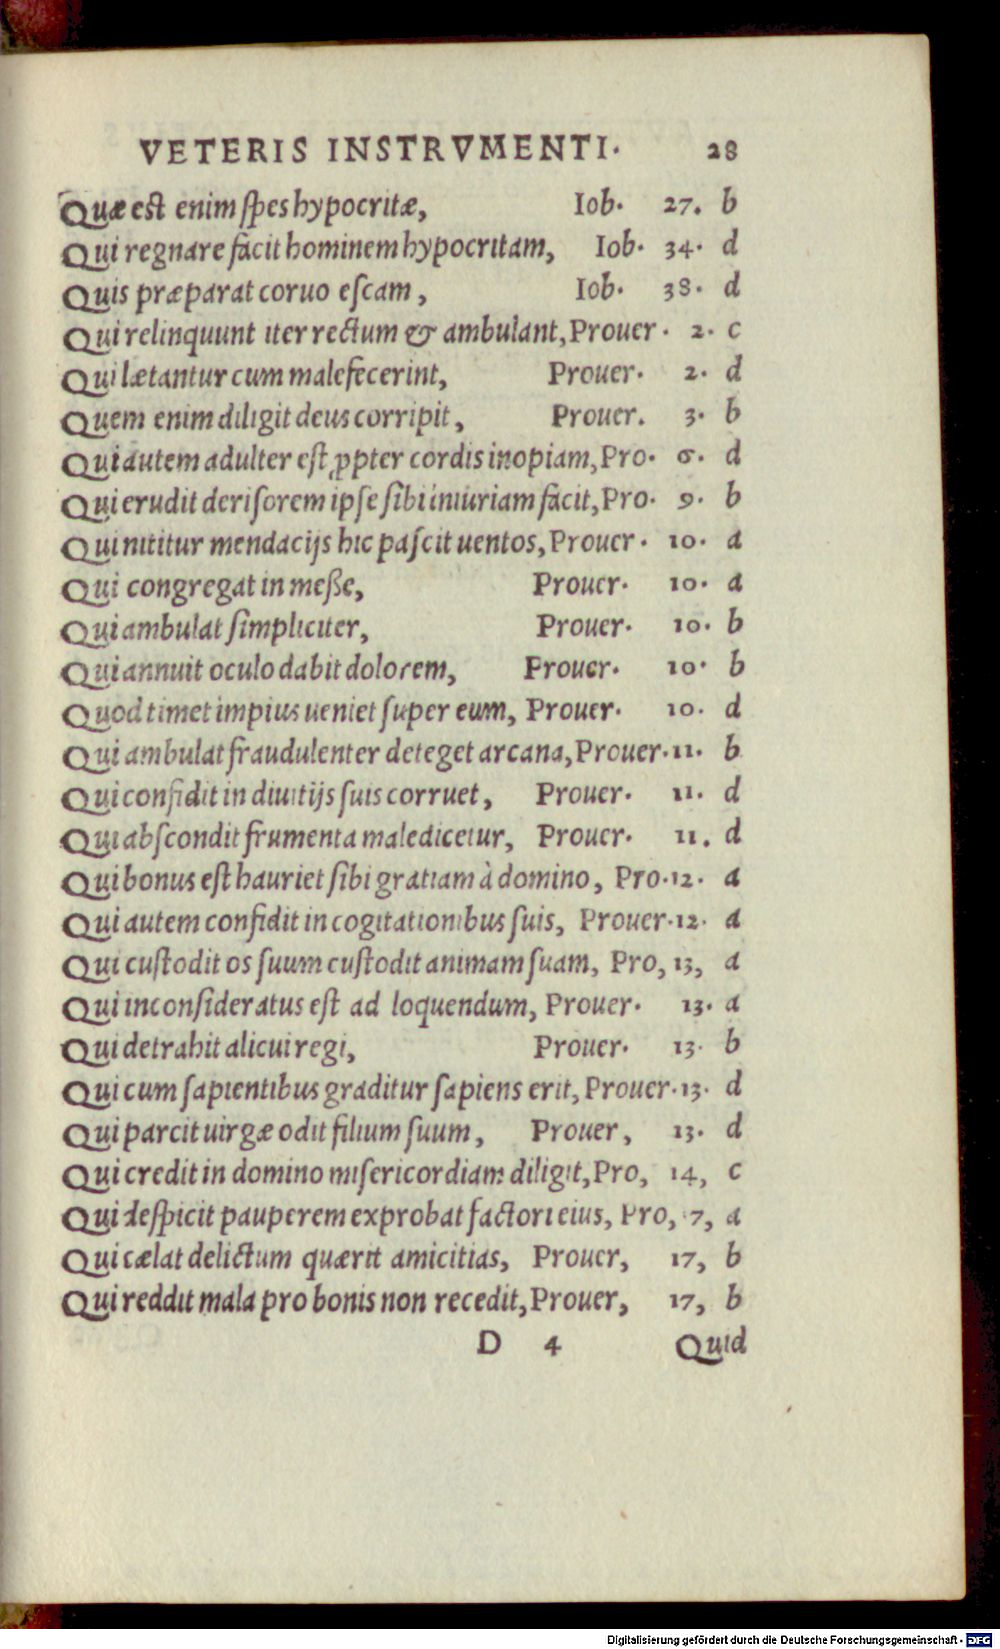 VETERIS INSTRVMENTI. 28
Quæ est enim spes hypocritæ, Iob. 27. b
Qui regnare facit hominem hypocritam, Iob. 34. d
Quis præparat coruo escam, Iob. 38. d
Qui relinquunt iter rectum & ambulant, Prouer. 2. c
Qui lætantur cum malefecerint, Prouer. 2. d
Quem enim diligit deus corripit, Prouer. 3. b
Qui autem adulter est ꝓpter cordis inopiam, Pro. 6. d
Qui erudit derisorem ipse sibi iniuriam facit, Pro. 9. b
Qui nititur mendacijs hic pascit uentos, Prouer. 10. a
Qui congregat in meße, Prouer. 10. a
Qui ambulat simpliciter, Prouer. 10. b
Qui annuit oculo dabit dolorem, Prouer. 10. b
Quod timet impius ueniet super eum, Prouer. 10. d
Qui ambulat fraudulenter deteget arcana, Prouer. 11. b
Qui confidit in diuitijs suis corruet, Prouer. 11. d
Qui abscondit frumenta maledicetur, Prouer. 11. d
Qui bonus est hauriet sibi gratiam à domino, Pro. 12. a
Qui autem confidit in cogitationibus suis, Prouer. 12. a
Qui custodit os suum custodit animam suam, Pro, 13, a
Qui inconsideratus est ad loquendum, Prouer. 13. a
Qui detrahit alicui regi, Prouer. 13. b
Qui cum sapientibus graditur sapiens erit, Prouer. 13. d
Qui parcit uirgæ odit filium suum, Prouer, 13. d
Qui credit in domino misericordiam diligit, Pro, 14, c
Qui despicit pauperem exprobat factori eius, Pro, 17, a
Qui cælat delictum quærit amicitias, Prouer, 17, b
Qui reddit mala pro bonis non recedit, Prouer, 17, b
D 4 Quid
Digitalisierung gefördert durch die Deutsche Forschungsgemeinschaft - DFG